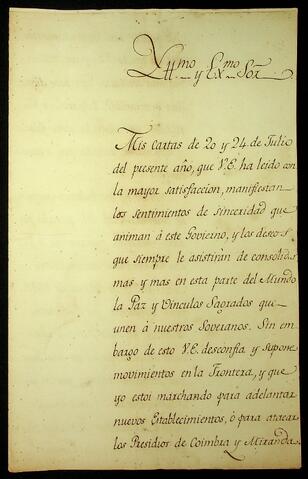 Yll.mo y Ex.mo Sor
Mis cartas de 20 y 24 de Julio
del presente año, que V.E. ha leido con
la mayor satisfaccion, manifiestan
los sentimientos de sinceridad que
animan á este Govierno, y los deseos
que siempre le asistirán de consolidar
mas y mas en esta parte del Mundo
la Paz y Vinculos Sagrados que
unen á nuestros Soveranos. Sin em
bargo de esto V.E. desconfia y supone
movimientos en la Frontera, y que
yo estoi marchando para adelantar
nuevos Establecimientos, ó para atacar
los Presidios de Coimbra y Miranda.